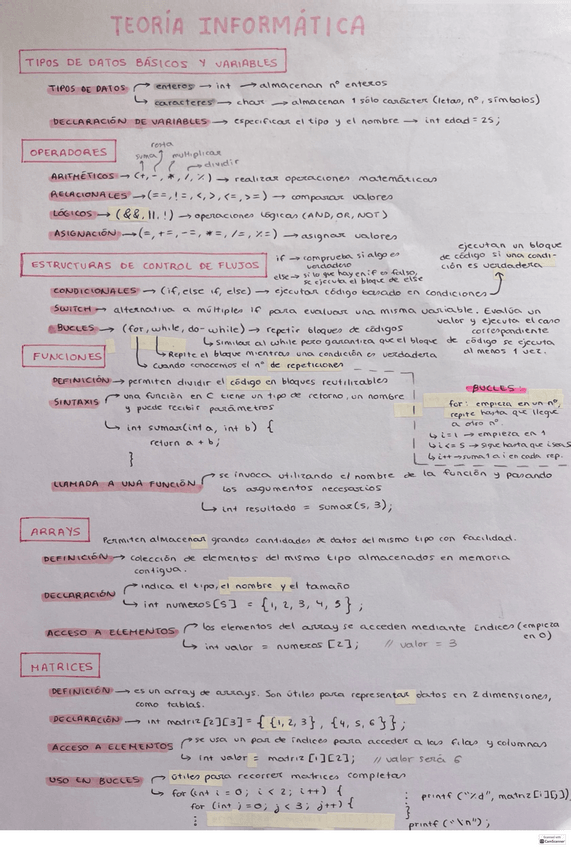 TEORÍA INFORMÁTICA
TIPOS DE DATOS BÁSICOS Y VARIABLES
TIPOS DE DATOS → enteros → int → almacenan nº enteros
→ caracteres → char → almacenan 1 sólo carácter (letas, nº, símbolos)
DECLARACIÓN DE VARIABLES → especificar el tipo y el nombre → int edad = 25;
OPERADORES
resta
suma multiplicar
dividir
ARITMÉTICOS → (+, -, *, /, %) → realizar operaciones matemáticas
RELACIONALES → (==, !=, <, >, <=, >=) → comparar valores
LÓGICOS → (&&, ||, !) → operaciones lógicas (AND, OR, NOT)
ASIGNACIÓN → (=, +=, -=, *=, /=, %=) → asignar valores
ESTRUCTURAS DE CONTROL DE FLUJOS
if → comprueba si algo es verdadero
else → si lo que hay en if es falso, se ejecuta el bloque de else
ejecutan un bloque
de código si una condi-
ción es verdadera
CONDICIONALES → (if, else if, else) → ejecutar código basado en condiciones
SWITCH → alternativa a múltiples if para evaluar una misma variable. Evalúa un
valor y ejecuta el caso
correspondiente
BUCLES → (for, while, do-while) → repetir bloques de códigos
→ Similar al while pero garantiza que el bloque de código se ejecuta
al menos 1 vez.
→ Repite el bloque mientras una condición es verdadera
→ Cuando conocemos el nº de repeticiones
FUNCIONES
DEFINICIÓN → permiten dividir el código en bloques reutilizables
SINTAXIS → una función en C tiene un tipo de retorno, un nombre
y puede recibir parámetros
→ int sumar(int a, int b) {
return a + b;
}
BUCLES:
for: empieza en un nº,
repite hasta que llegue
a otro nº.
→ i=1 → empieza en 1
→ i<=5 → sigue hasta que i sea 5
→ i++ → suma 1 a i en cada rep.
LLAMADA A UNA FUNCIÓN → se invoca utilizando el nombre de la función y pasando
los argumentos necesarios
→ int resultado = sumar(5, 3);
ARRAYS
Permiten almacenar grandes cantidades de datos del mismo tipo con facilidad.
DEFINICIÓN → colección de elementos del mismo tipo almacenados en memoria
contigua.
DECLARACIÓN → indica el tipo, el nombre y el tamaño
→ int numeros[5] = {1, 2, 3, 4, 5};
ACCESO A ELEMENTOS → los elementos del array se acceden mediante índices (empieza
en 0)
→ int valor = numeros [2]; // valor = 3
MATRICES
DEFINICIÓN → es un array de arrays. Son útiles para representar datos en 2 dimensiones,
como tablas.
DECLARACIÓN → int matriz[2][3] = { {1, 2, 3}, {4, 5, 6} };
ACCESO A ELEMENTOS → se usa un par de índices para acceder a las filas y columnas
→ int valor = matriz [1][2]; // valor será 6
USO EN BUCLES → útiles para recorrer matrices completas
→ for (int i = 0; i < 2; i++) {
for (int j = 0; j < 3; j++) {
printf ("%d", matriz[i][j]);
}
printf ("\n");
CamScanner